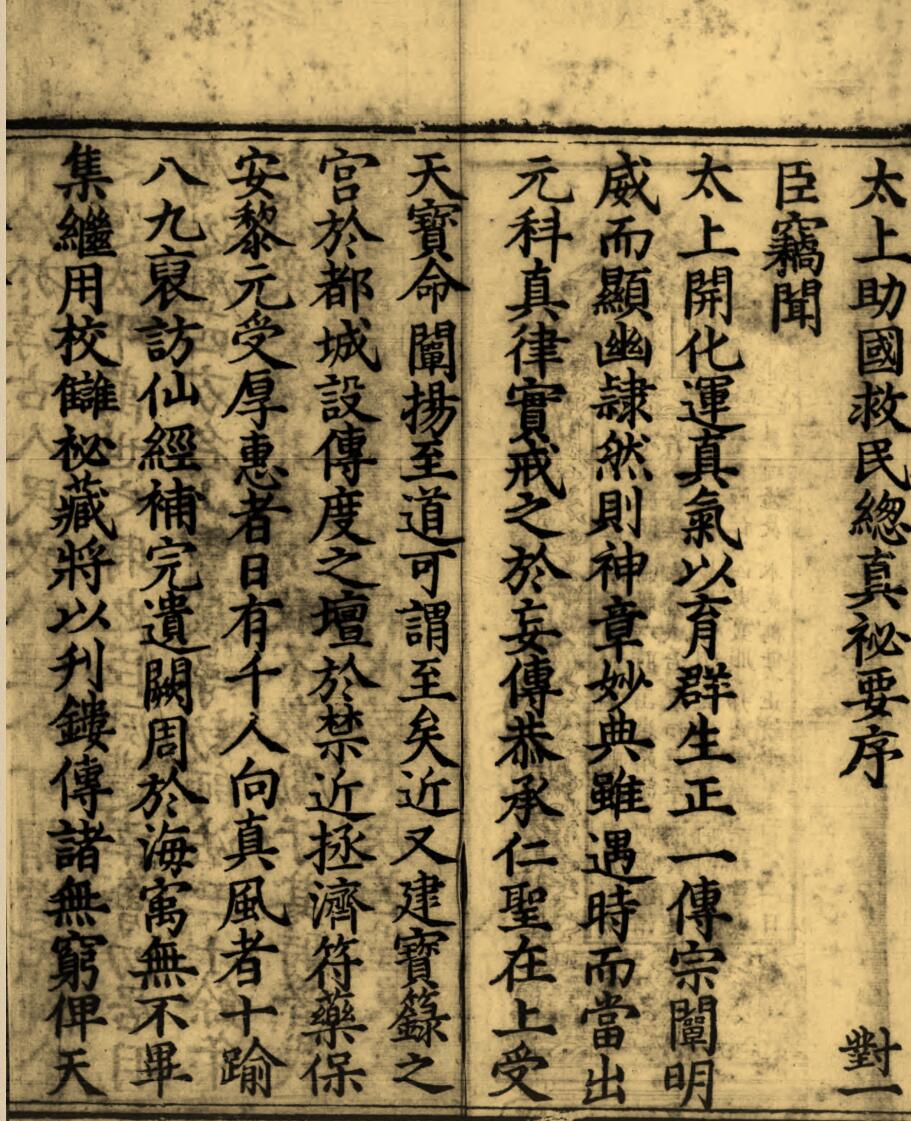 太上助國救民緫真祕要序 對一
臣竊聞
太上開化運真氣以育群生正一傳宗闡明
威而顯幽隷然則神章妙典雖遇時而當出
元科真律實戒之於妄傳恭承仁聖在上受
天寶命闡揚至道可謂至矣近又建寶籙之
宫於都城設傳度之壇於禁近拯濟符藥保
安黎元受厚惠者日有千人向真風者十踰
八九裒訪仙經補完遺闕周於海㝢無不畢
集繼用校讎祕藏將以刋鏤傳諸無窮俾天